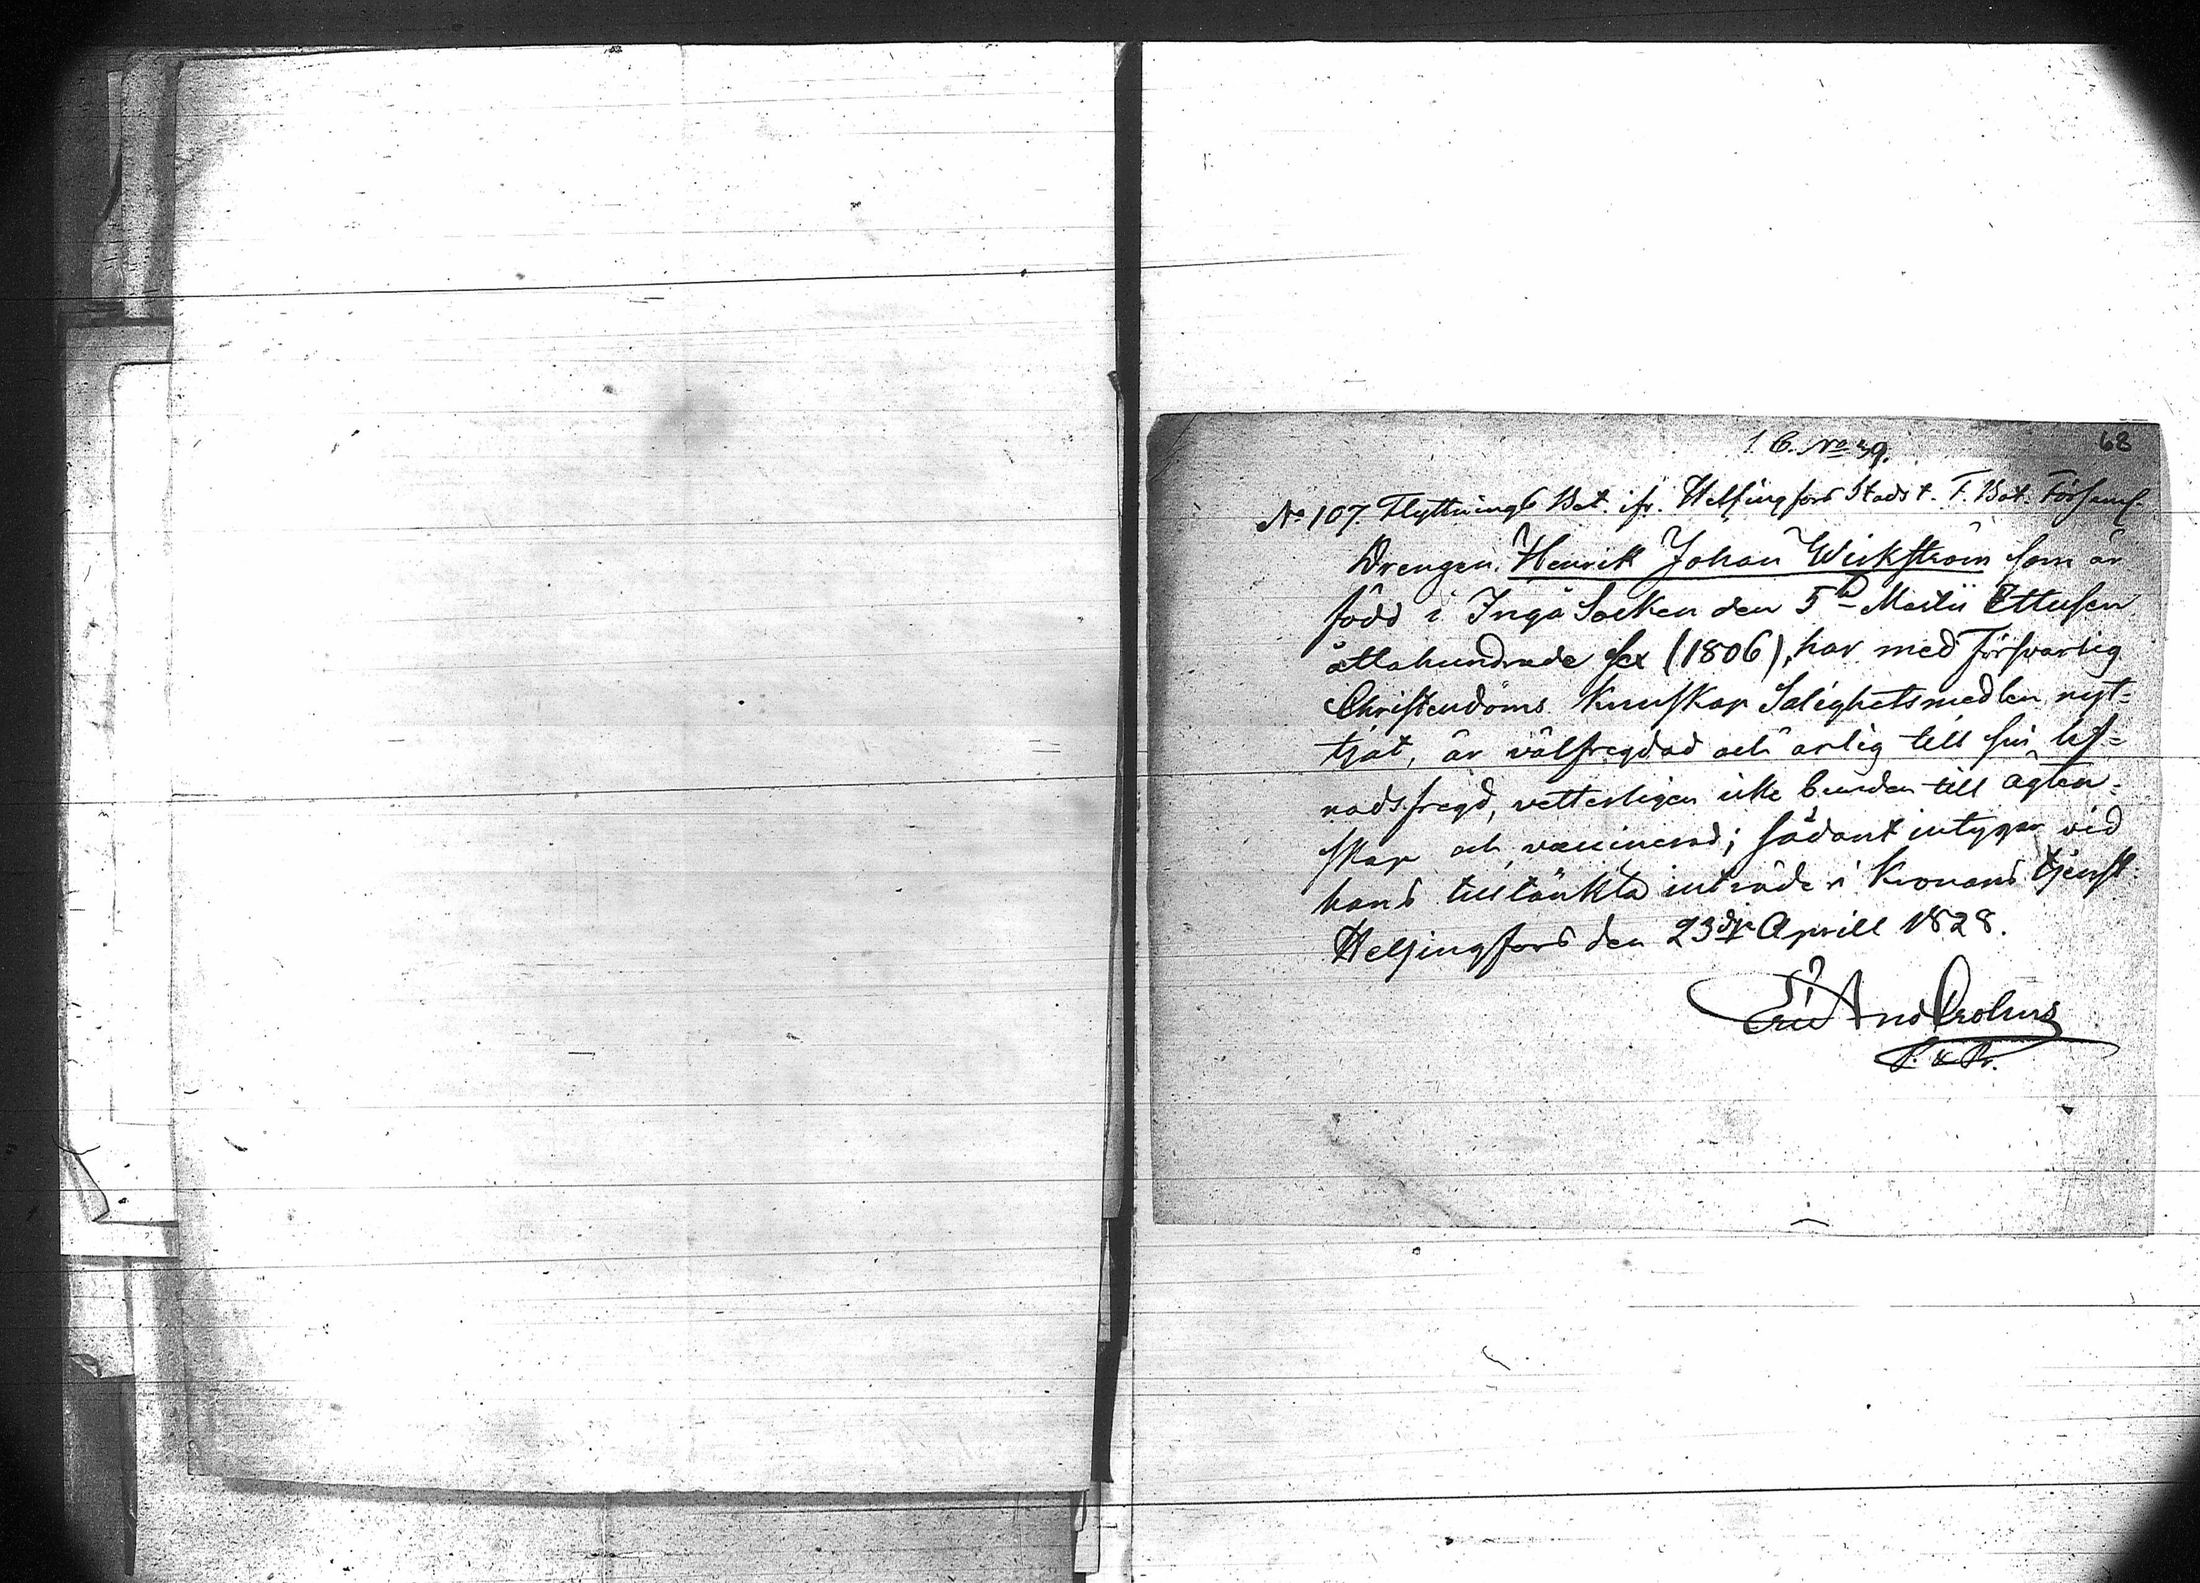 1. C. No 39.
68
No 107. Flyttnings Bet. ifr. Helsingfors Stad t. F. Bat. Församl.
Drengen Henrik Johan Wickström som är
född i Ingå Socken den 5te Martii Ettusen
åttahundrade sex (1806), har med försvarlig
Christendoms Kunskap Salighetsmedlen nyt-
tjat, är välfregdad och ärlig till sin lef-
nadsfregd, vetterligen icke bunden till ägten-
skap och vaccinerad; sådant intygar vid
hans tilltänkta inträde i Kronans tjenst.
Helsingfors den 23dje Aprill 1828.
Eric And Crohns